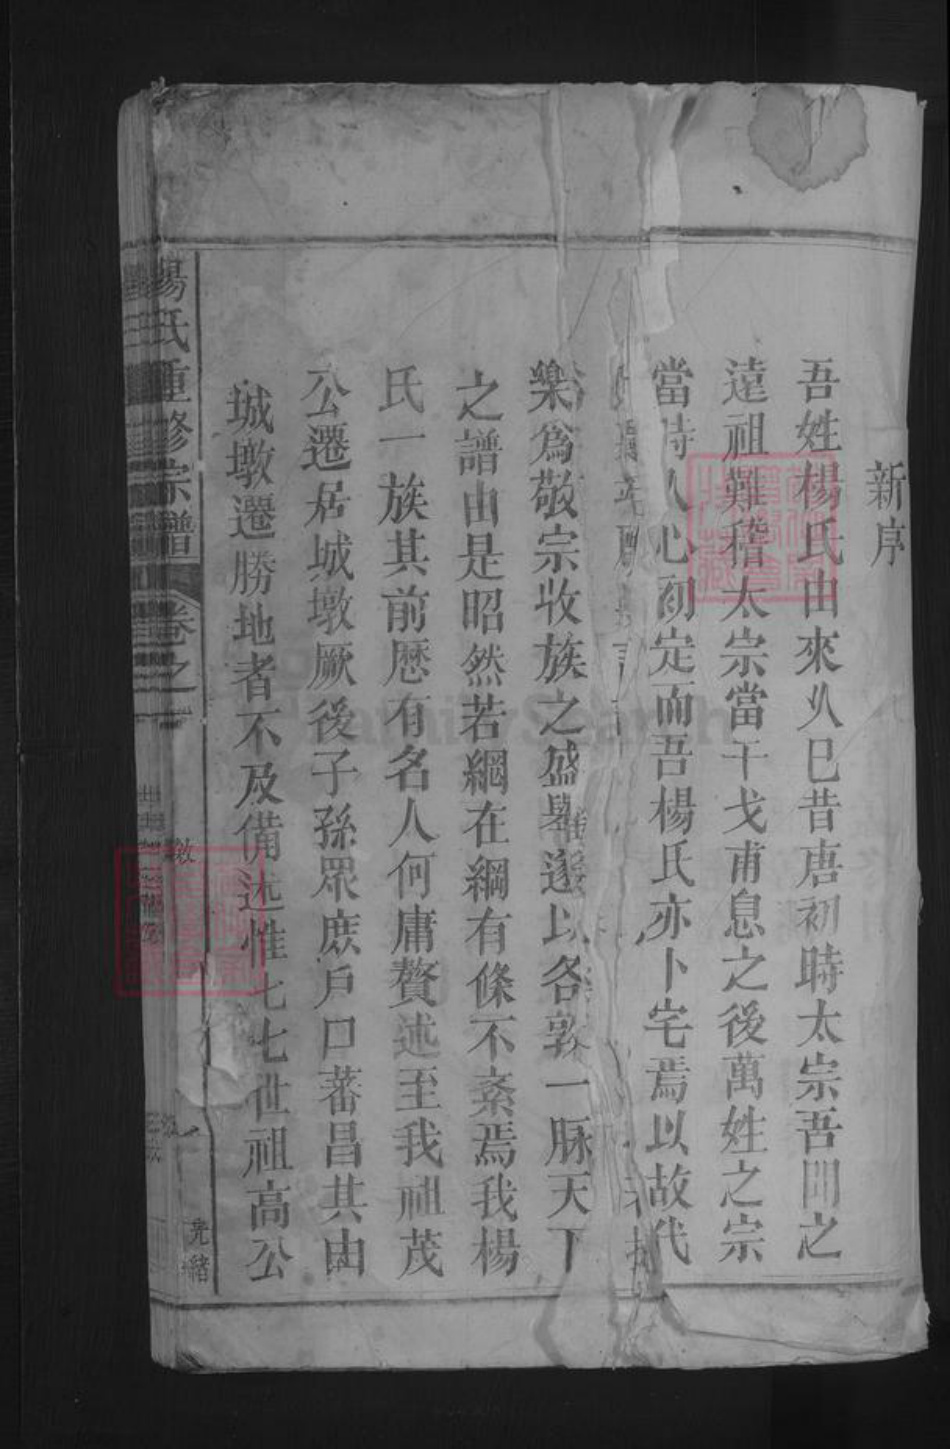 新序
吾姓楊氏由來久巳昔唐初時太宗吾聞之
遠祖難稽太宗當干戈甫息之後萬姓之宗
當時人心初定而吾楊氏亦卜宅焉以故代
樂為敬宗收族之盛舉遂以各敦一脉天下
之譜由是昭然若網在綱有條不紊焉我楊
氏一族其前歷有名人何庸贅述至我祖茂
公遷居城墩厥後子孫眾庶戶口蕃昌其由
城墩遷勝地者不及備述惟七七世祖高公
楊氏重修宗譜 卷之 光緒
FamilySearch